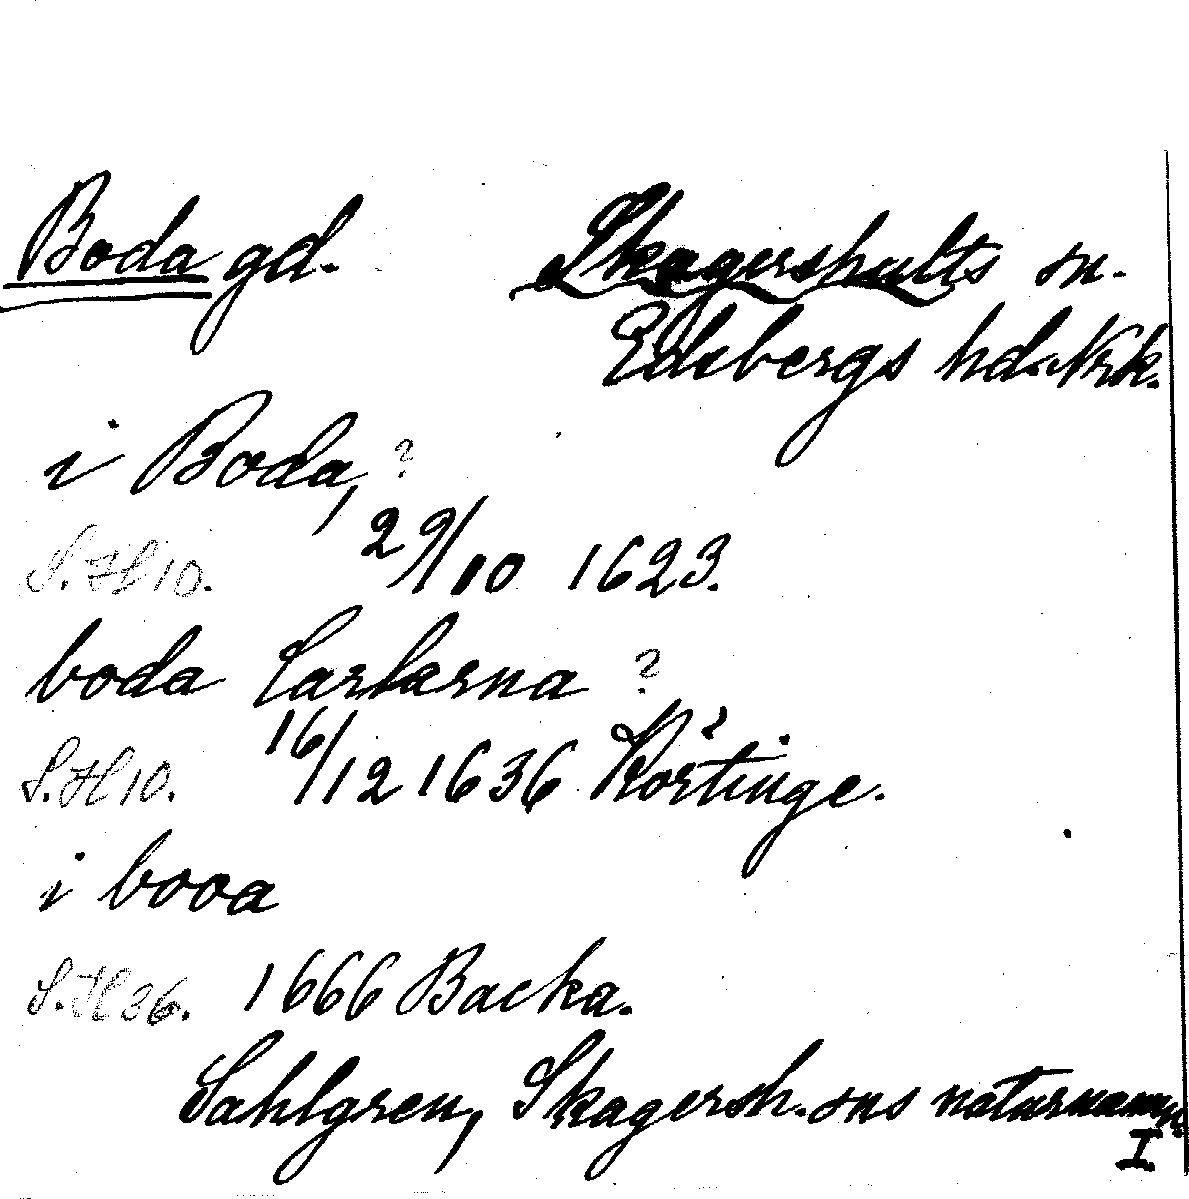 Boda gd. Skagershults sn.
Edsbergs hd. Nrk.
i Boda, ?
S.H 10. 29/10 1623.
boda Carlarna ?
S.H 10. 16/12 1636 Körtinge.
i booa
S.H 36. 1666 Backa.
Sahlgren, Skagersh. sns naturnamn
I